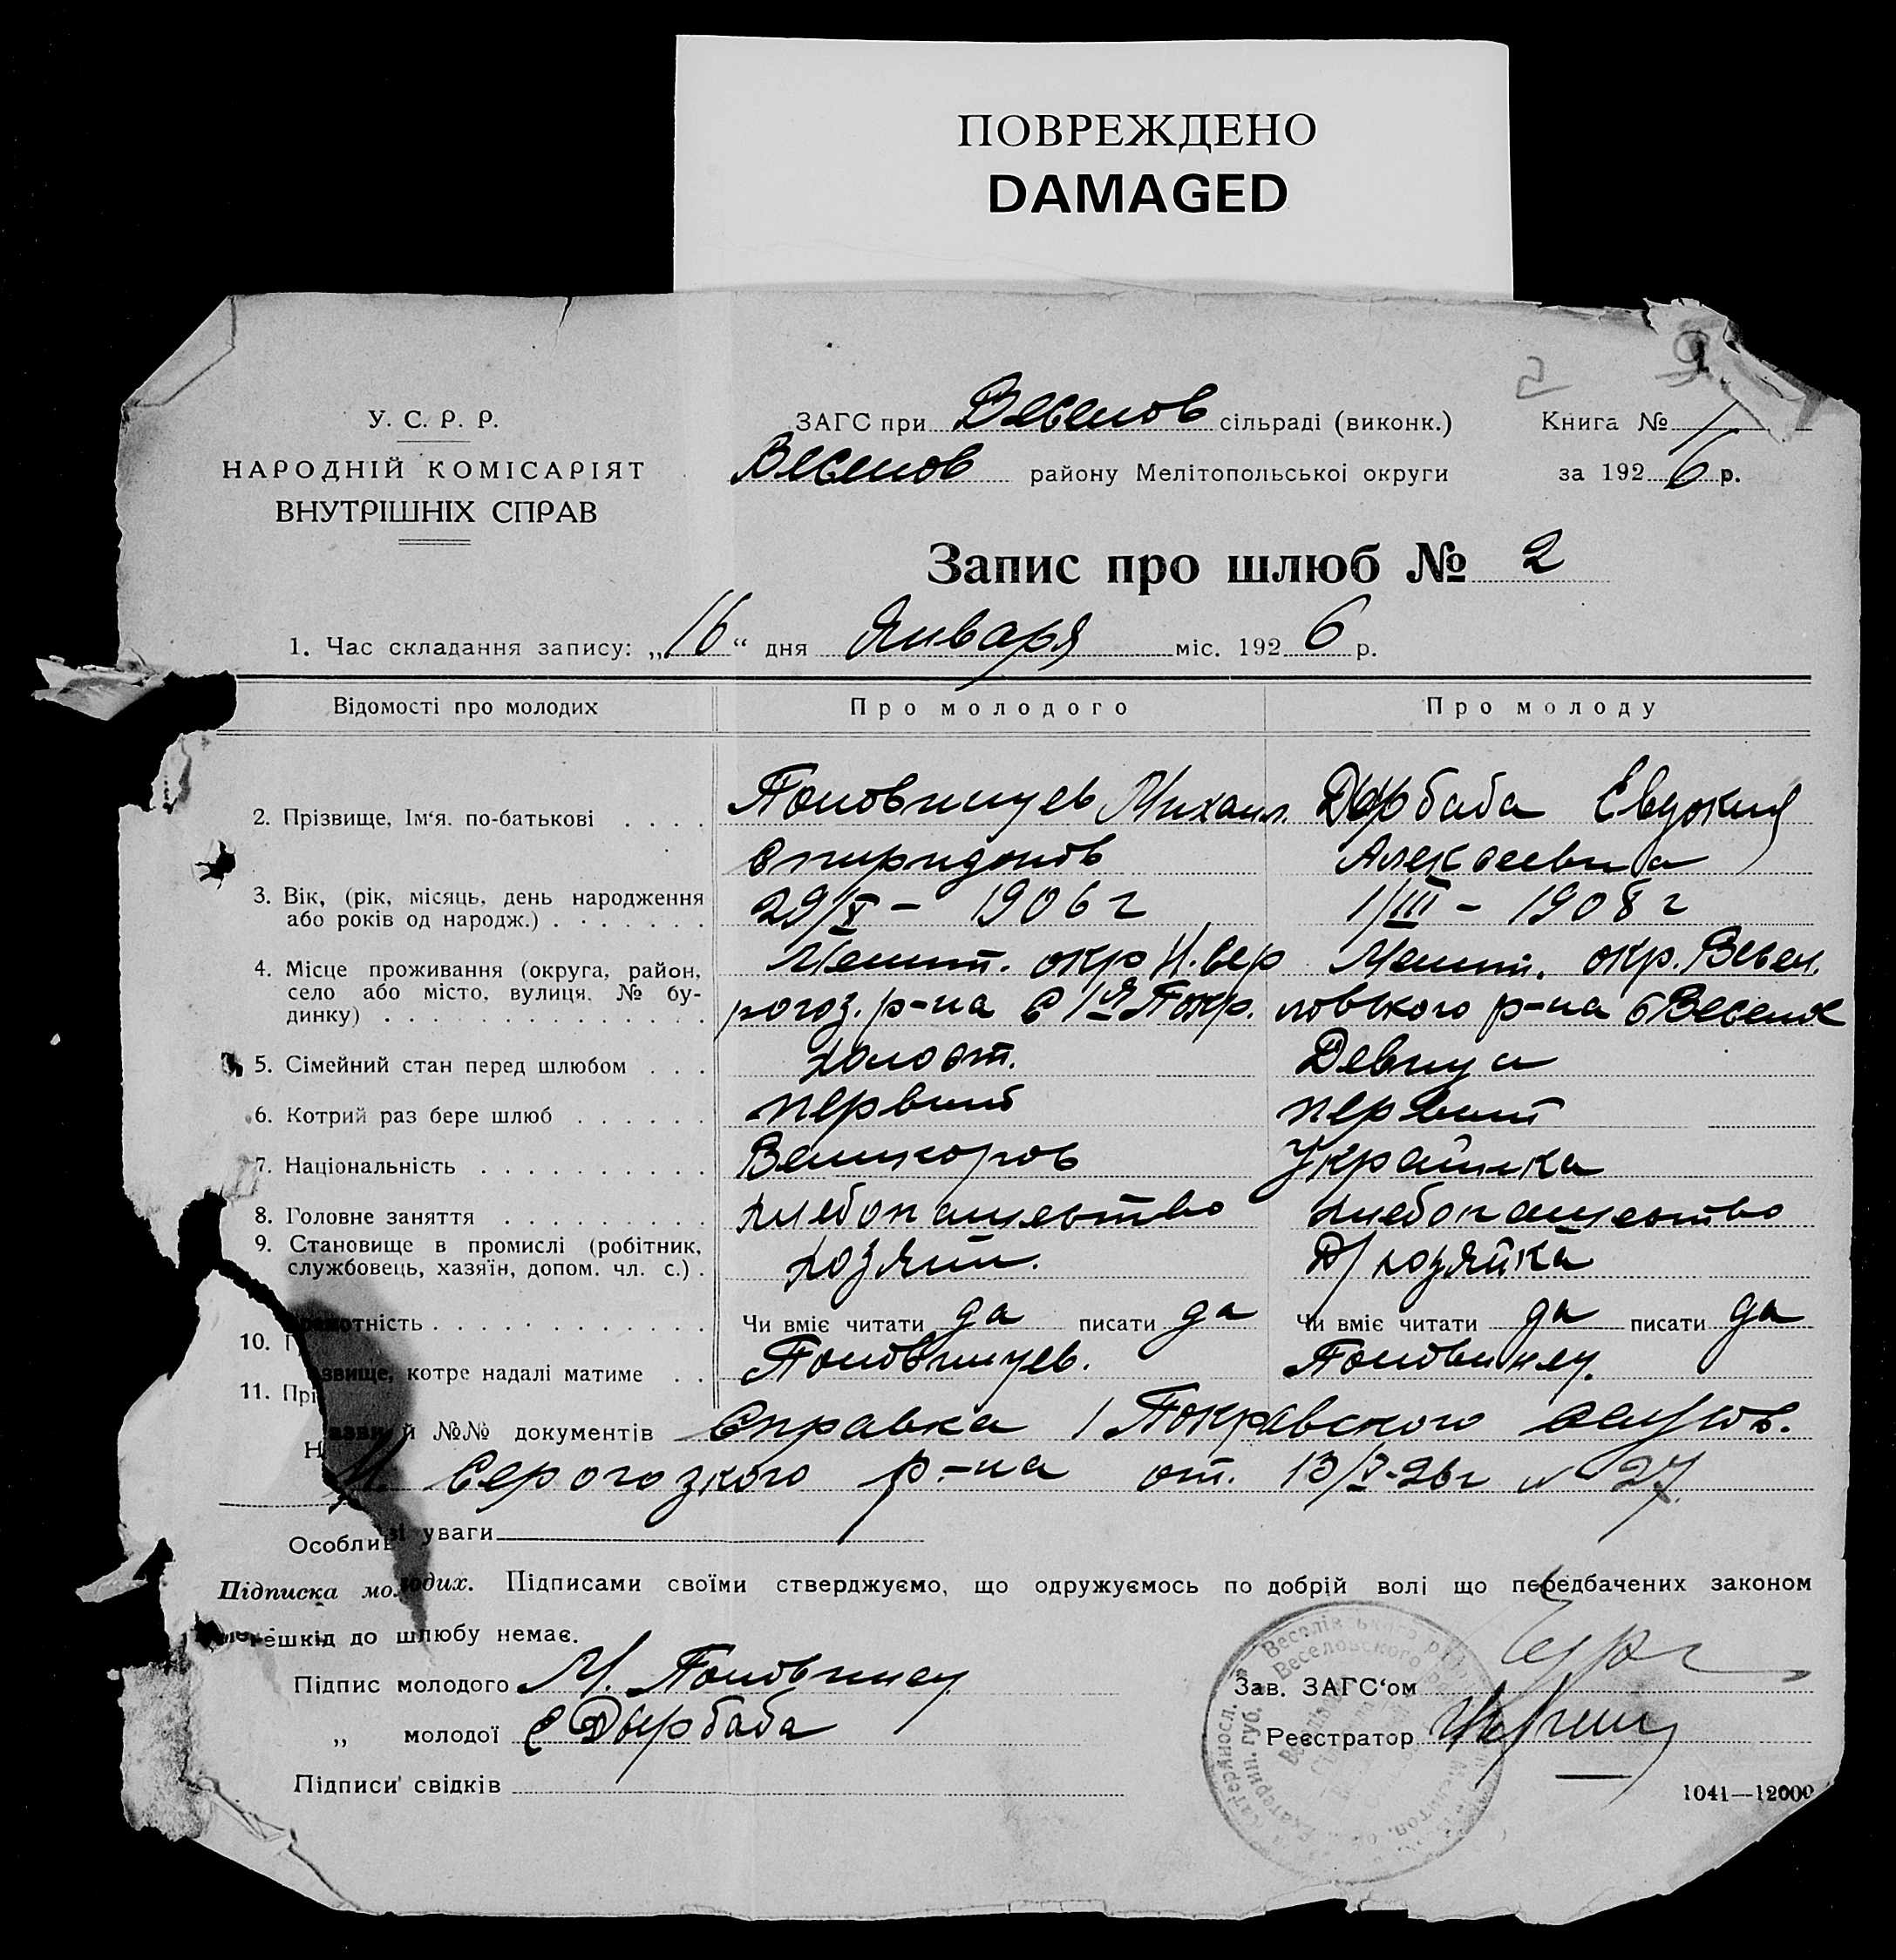 ПОВРЕЖДЕНО
DAMAGED
2
У. С. Р. Р.
НАРОДНІЙ КОМІСАРІЯТ
ВНУТРІШНІХ СПРАВ
ЗАГС при Веселов сільраді (виконк.) Книга № 1
Веселов району Мелітопольської округи за 1926 р.
Запис про шлюб № 2
1. Час складання запису: „16“ дня Января міс. 1926 р.
Відомості про молодих Про молодого Про молоду
2. Прізвище, Ім‘я. по-батькові . . . . Половинцев Михаил. Дырбаба Евдокия
Спиридонов Алексеевна
3. Вік, (рік, місяць, день народження
або років од народж.) . . . . . . . 29/X – 1906 г 1/III – 1908 г
4. Місце проживання (округа, район, Мелит. окр Н. Сер Мелит. окр. Весел.
село або місто, вулиця, № бу-
динку) . . . . . . . . . . . . . . . рогоз. р-на с 1я Покр. ловского р-на с Веселое
5. Сімейний стан перед шлюбом . . . холост. Девица
6. Котрий раз бере шлюб . . . . . . первый первый
7. Національність . . . . . . . . . . Великоров Украинка
8. Головне заняття . . . . . . . . . хлебопашество хлебопашество
9. Становище в промислі (робітник,
службовець, хазяїн, допом. чл. с.) . хозяин. Д/хозяйка
10. Грамотність . . . . . . . . . . . . Чи вміє читати да писати да Чи вміє читати да писати да
11. Прізвище, котре надалі матиме . . Половинцев. Половинцев.
Назви й №№ документів Справка 1 Покравского
Н. Серогозкого р-на от. 13/I-26г № 27.
Особливі уваги
Підписка молодих. Підписами своїми стверджуємо, що одружуємось по добрій волі що передбачених законом
перешкід до шлюбу немає.
Підпис молодого М. Половинцев
Зав. ЗАГС‘ом
„ молодої Е Дырбаба
Реєстратор
Підписи свідків
1041—12000